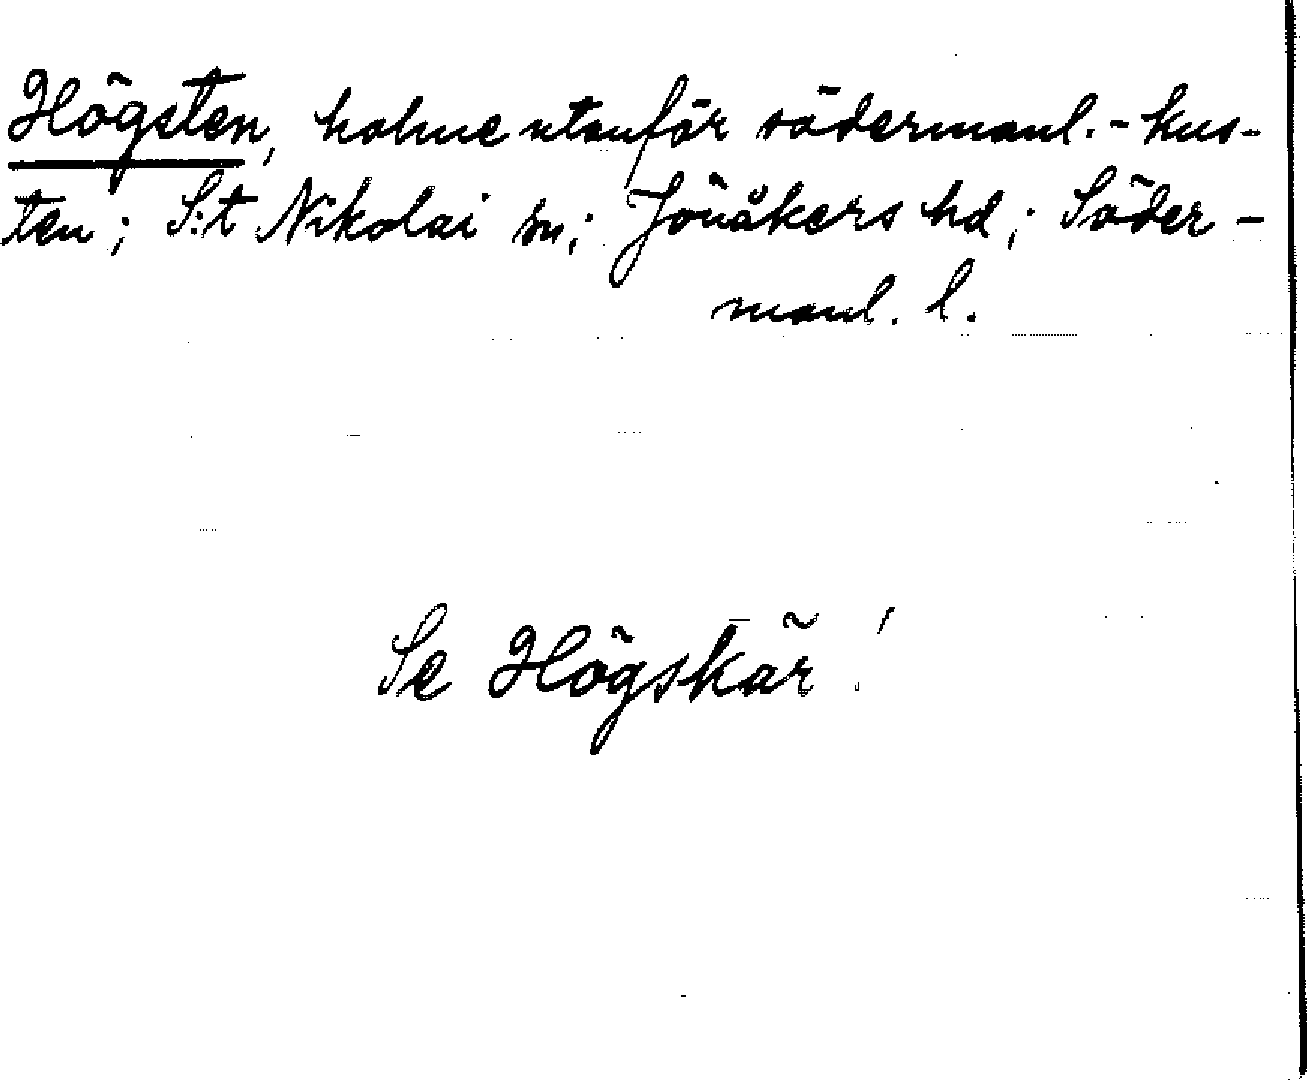 Högsten, holme utanför södermanl.-kus-
ten; S:t Nikolai sn; Jönåkers hd; Söder-
manl. l.
Se Högskär!